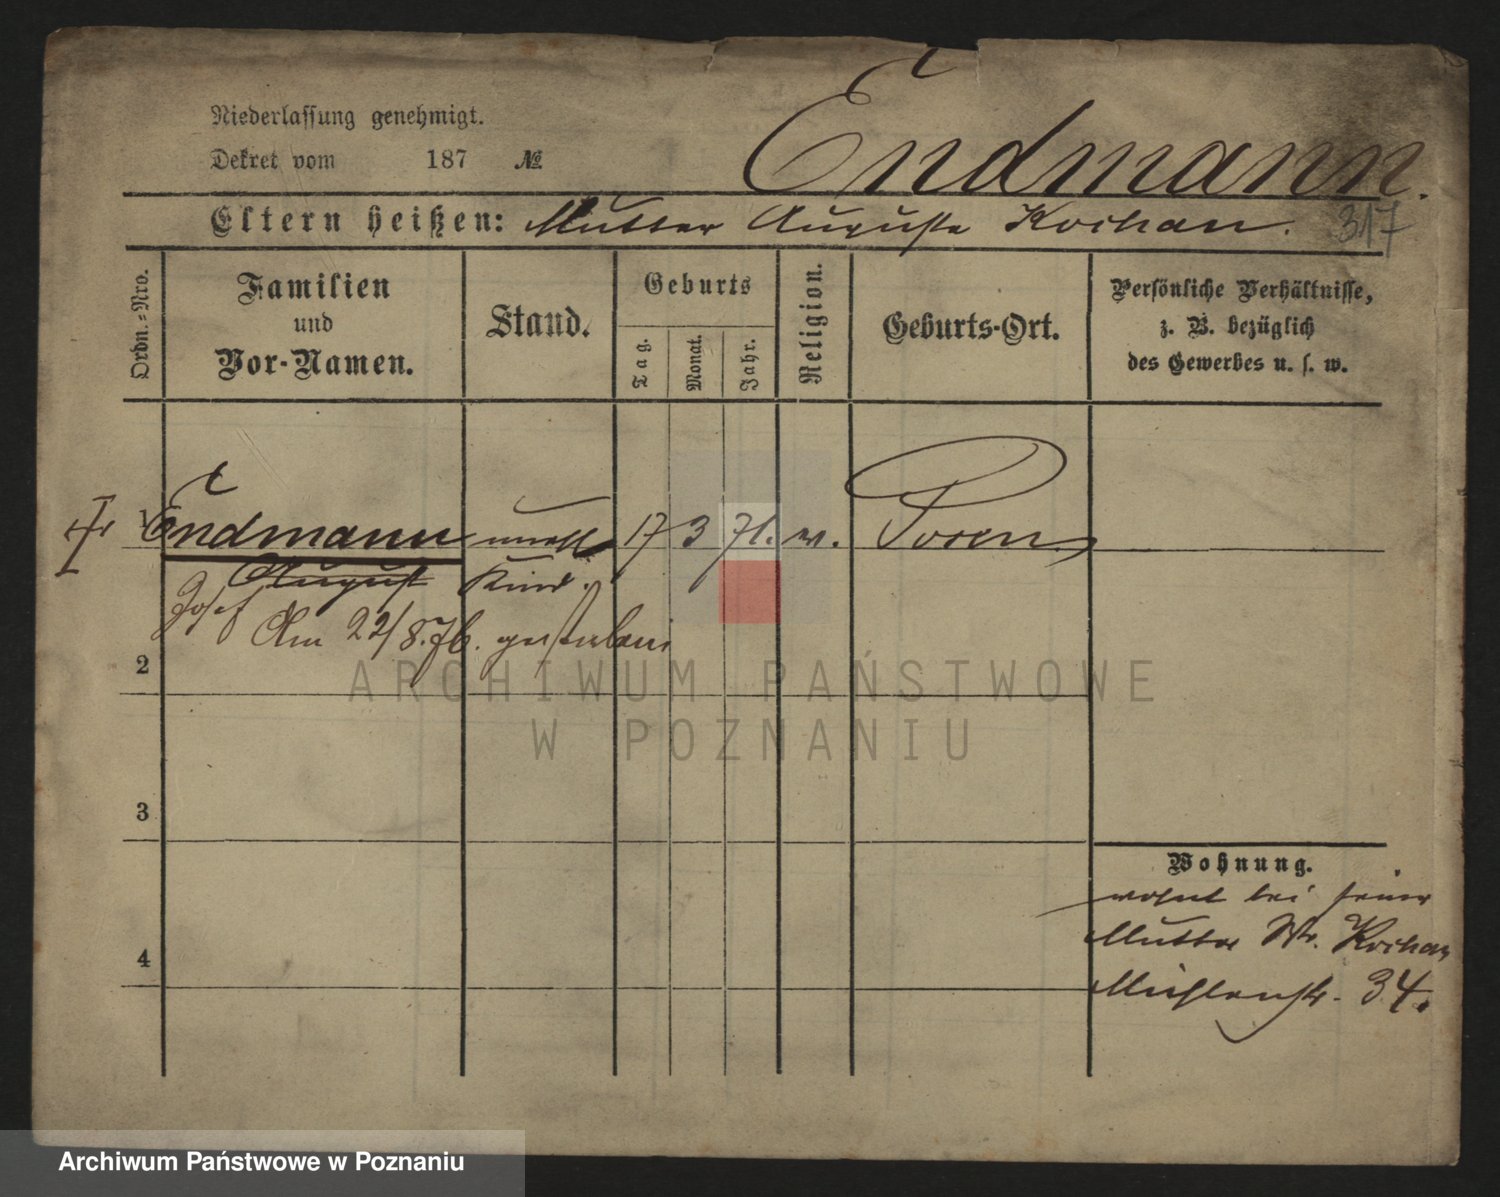 Niederlassung genehmigt.
Dekret vom 187 №
Endmann.
Eltern heißen: Mutter Auguste Kochan. 317
Ordn.-Nro.
Familien
und
Vor-Namen.
Stand.
Geburts
Tag.
Monat.
Jahr.
Religion.
Geburts-Ort.
Persönliche Verhältnisse,
z. B. bezüglich
des Gewerbes u. s. w.
1 Endmann unehl 17 3 71. Posen
August Kind.
Josef Am 22/8.76. gestorben
2
3
Wohnung.
wohnt bei seiner
Mutter Ww. Kochan
4
Mühlenstr. 34.
ARCHIWUM PAŃSTWOWE
W POZNANIU
Archiwum Państwowe w Poznaniu